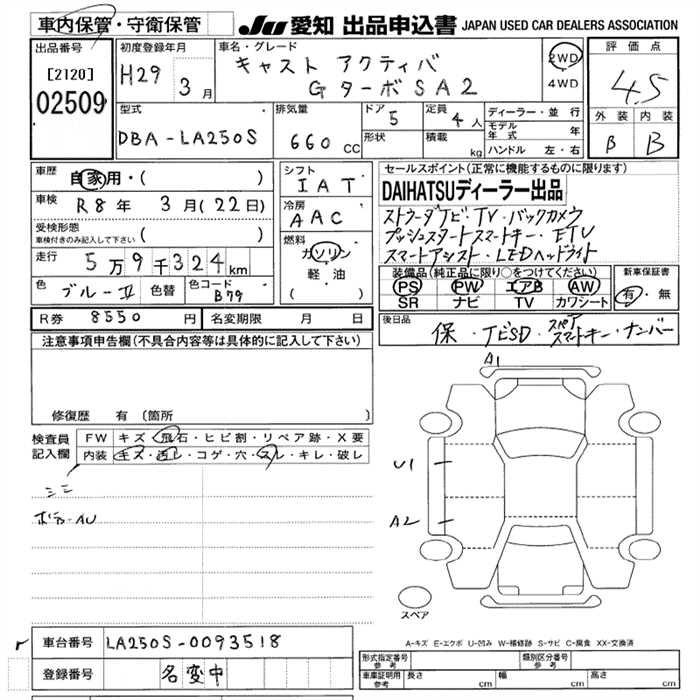 車内保管・守衛保管
JU 愛知 出品申込書 JAPAN USED CAR DEALERS ASSOCIATION
出品番号
[2120]
02509
初度登録年月
H29 3月
車名・グレード
キャスト アクティバ
Gターボ SA2
2WD
4WD
評価点
4.5
外装 内装
B B
型式
DBA-LA250S
排気量
660 CC
ドア 5
形状
定員 4人
積載 kg
ディーラー・並行
モデル年式 年
ハンドル 左・右
車歴 自家用・( )
車検 R8年 3月(22日)
受検形態
車検付きのみ記入して下さい ( )
走行 5万9千324km
色 ブルーII 色替 色コード B79
シフト
IAT
冷房
AAC
燃料
ガソリン
軽油
( )
セールスポイント(正常に機能するものに限ります)
DAIHATSUディーラー出品
ストラーダナビ・TV・バックカメラ
プッシュスタートスマートキー・ETC
スマートアシスト・LEDヘッドライト
装備品(純正品に限り○をつけてください)
PS PW エアB AW
SR ナビ TV カワシート
新車保証書
有・無
R券 8550円 名変期限 月 日
後日品
保・ナビSD・スペアスマートキー・ナンバー
注意事項申告欄(不具合内容等は具体的に記入して下さい)
修復歴 有(箇所 )
検査員記入欄
FW キズ・飛石・ヒビ割・リペア跡・X要
内装 キズ・汚レ・コゲ・穴・スレ・キレ・破レ
A1
U1
A2
スペア
A-キズ E-エクボ U-凹み W-補修跡 S-サビ C-腐食 XX-交換済
車台番号 LA250S-0093518
登録番号 名変中
形式指定番号 参考
類別区分番号 参考
車庫証明用 参考
長さ cm 幅 cm 高さ cm